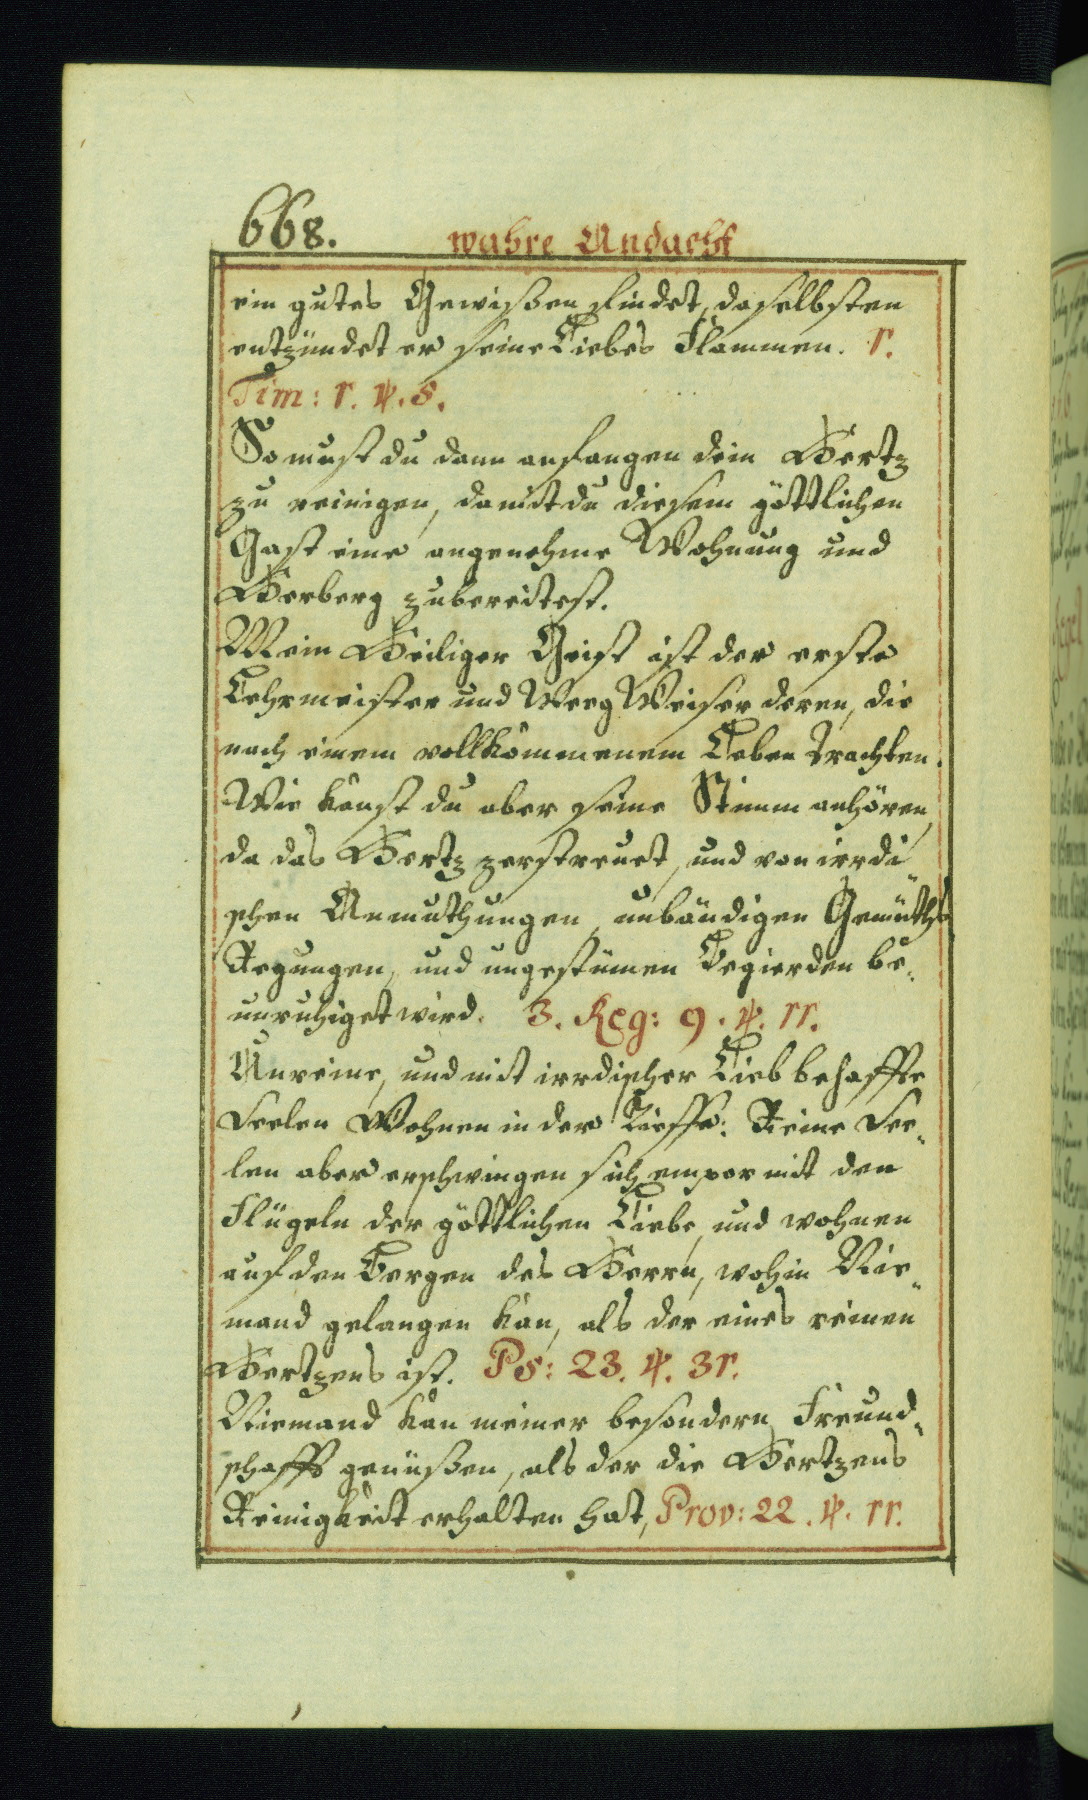 668.
wahre Andacht
ein gutes Gewißen findet, daselbsten
entzündet er seine Liebes Flammen. 1.
Tim: 1. ℣. 5.
So must du dann anfangen dein Hertz
zu reinigen, damit du diesem göttlichen
Gast eine angenehme Wohnung und
Herberg zubereitest.
Mein Heiliger Geist ist der erste
Lehrmeister und Weeg Weiser deren, die
nach einem vollkommenem Leben trachten.
Wie kanst du aber seine Stimm anhören,
da das Hertz zerstreuet, und von irrdi„
schen Anmuthungen, unbändigen Gemüths
Regungen, und ungestümen Begierden be„
unruhiget wird. 3. Reg: 9. ℣. 11.
Unreine, und mit irrdischer Lieb behaffte
Seelen Wohnen in der Tieffe: Reine See„
len aber erschwingen sich empor mit den
Flügeln der göttlichen Liebe, und wohnen
auf den Bergen des Herrn, wohin Nie„
mand gelangen kan, als der eines reinen
Hertzens ist. Ps: 23. ℣. 31.
Niemand kan meiner besondern Freund„
schafft genüßen, als der die Hertzens
Reinigkeit erhalten hat, Prov: 22. ℣. 11.